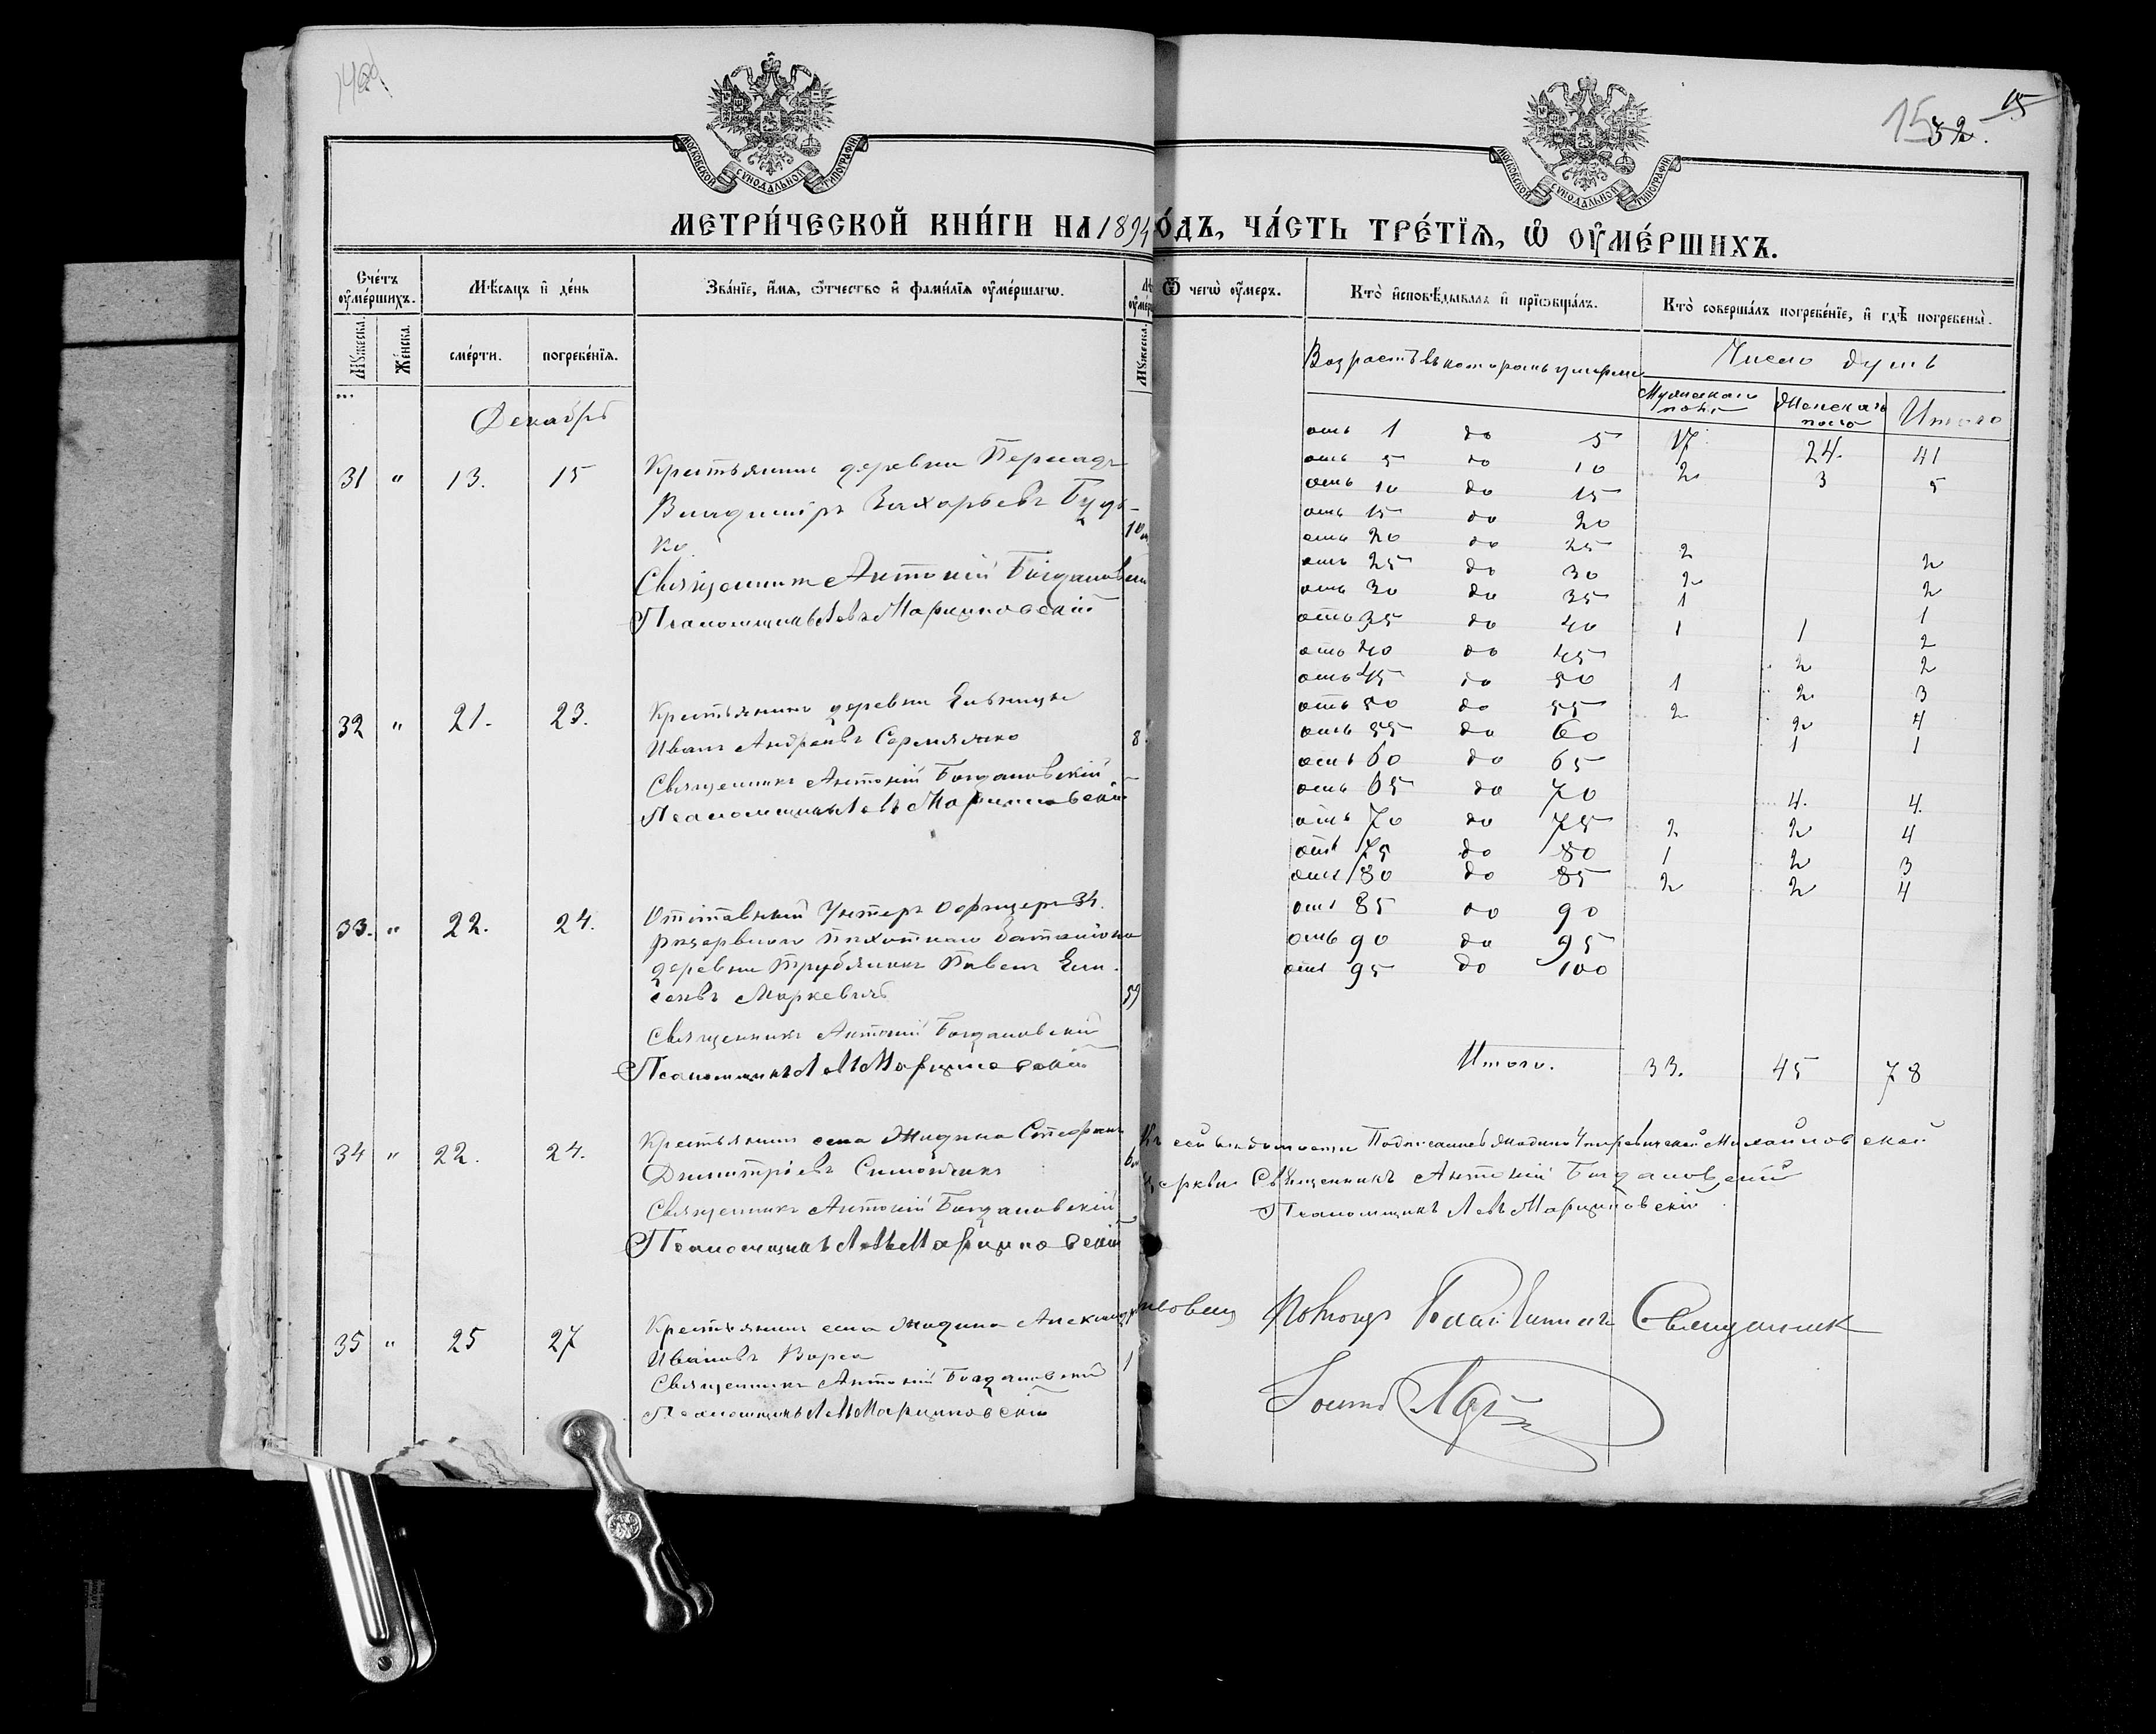 15 32. 15
МОСКОВСКОЙ СУНОДАЛЬНОЙ ТИПОГРАФІИ
МОСКОВСКОЙ СУНОДАЛЬНОЙ ТИПОГРАФІИ
МЕТРИ́ЧЕСКОЙ КНИ́ГИ НА 1894 О́ДЪ, ЧА́СТЬ ТРЕ́ТЇѦ, Ѡ҆ ОУ҆МЕ́РШИХЪ.
Сче́тъ оу҆ме́ршихъ.
Мꙋжеска.
Же́нска.
Мѣ́сѧцъ и҆ де́нь
сме́рти.
погребе́нїѧ.
Зва́нїе, и҆́мѧ, ѻ҆́тчество и҆ фами́лїѧ оу҆ме́ршагѡ.
Мꙋжеска.
Ѿ чегѡ̀ оу҆́меръ.
Кто̀ и҆сповѣ́дывалъ и҆ прїѡбща́лъ.
Кто̀ соверша́лъ погребе́нїе, и҆ гдѣ̀ погребены̀.
Декабрь
31 " 13. 15
Крестьянинъ деревни
Владиміръ Захарьевъ Будь-
ко.
10м
Священникъ Антоній Богдановскій
Псаломщикъ Левъ Марциновскій
32 " 21. 23.
Крестьянинъ деревни
Иванъ Андреевъ
8.
Священникъ Антоній Богдановскій
Псаломщикъ Левъ Марциновскій
33. " 22. 24.
Отставный Унтеръ Офицеръ 34.
резервнаго пѣхотнаго баталіона
деревни Трублянкъ Павелъ Ели-
сеевъ Маркевичъ
59
Священникъ Антоній Богдановскій
Псаломщикъ Левъ Марциновскій
34 " 22. 24.
Крестьянинъ села Жидина Стефанъ
Димитріевъ
Священникъ Антоній Богдановскій
Псаломщикъ Левъ Марциновскій
35 " 25 27
Крестьянинъ села Жидина Александръ
Ивановъ Ворса
1
Священникъ Антоній Богдановскій
Псаломщикъ Левъ Марциновскій
Возрастъ въ которомъ умерли
Число душъ
Мужескаго пола
Женскаго пола
Итого
отъ 1 до 5 17 24. 41
отъ 5 до 10 2 3 5
отъ 10 до 15
отъ 15 до 20
отъ 20 до 25 2 2
отъ 25 до 30 2 2
отъ 30 до 35 1 1
отъ 35 до 40 1 1 2
отъ 40 до 45 2 2
отъ 45 до 50 1 2 3
отъ 50 до 55 2 2 4
отъ 55 до 60 1 1
отъ 60 до 65
отъ 65 до 70 4. 4.
отъ 70 до 75 2 2 4
отъ 75 до 80 1 2 3
отъ 80 до 85 2 2 4
отъ 85 до 90
отъ 90 до 95
отъ 95 до 100
Итого. 33. 45 78
Къ сей вѣдомости Михайловской
церкви Священникъ Антоній Богдановскій
Псаломщикъ Левъ Марциновскій
Священник